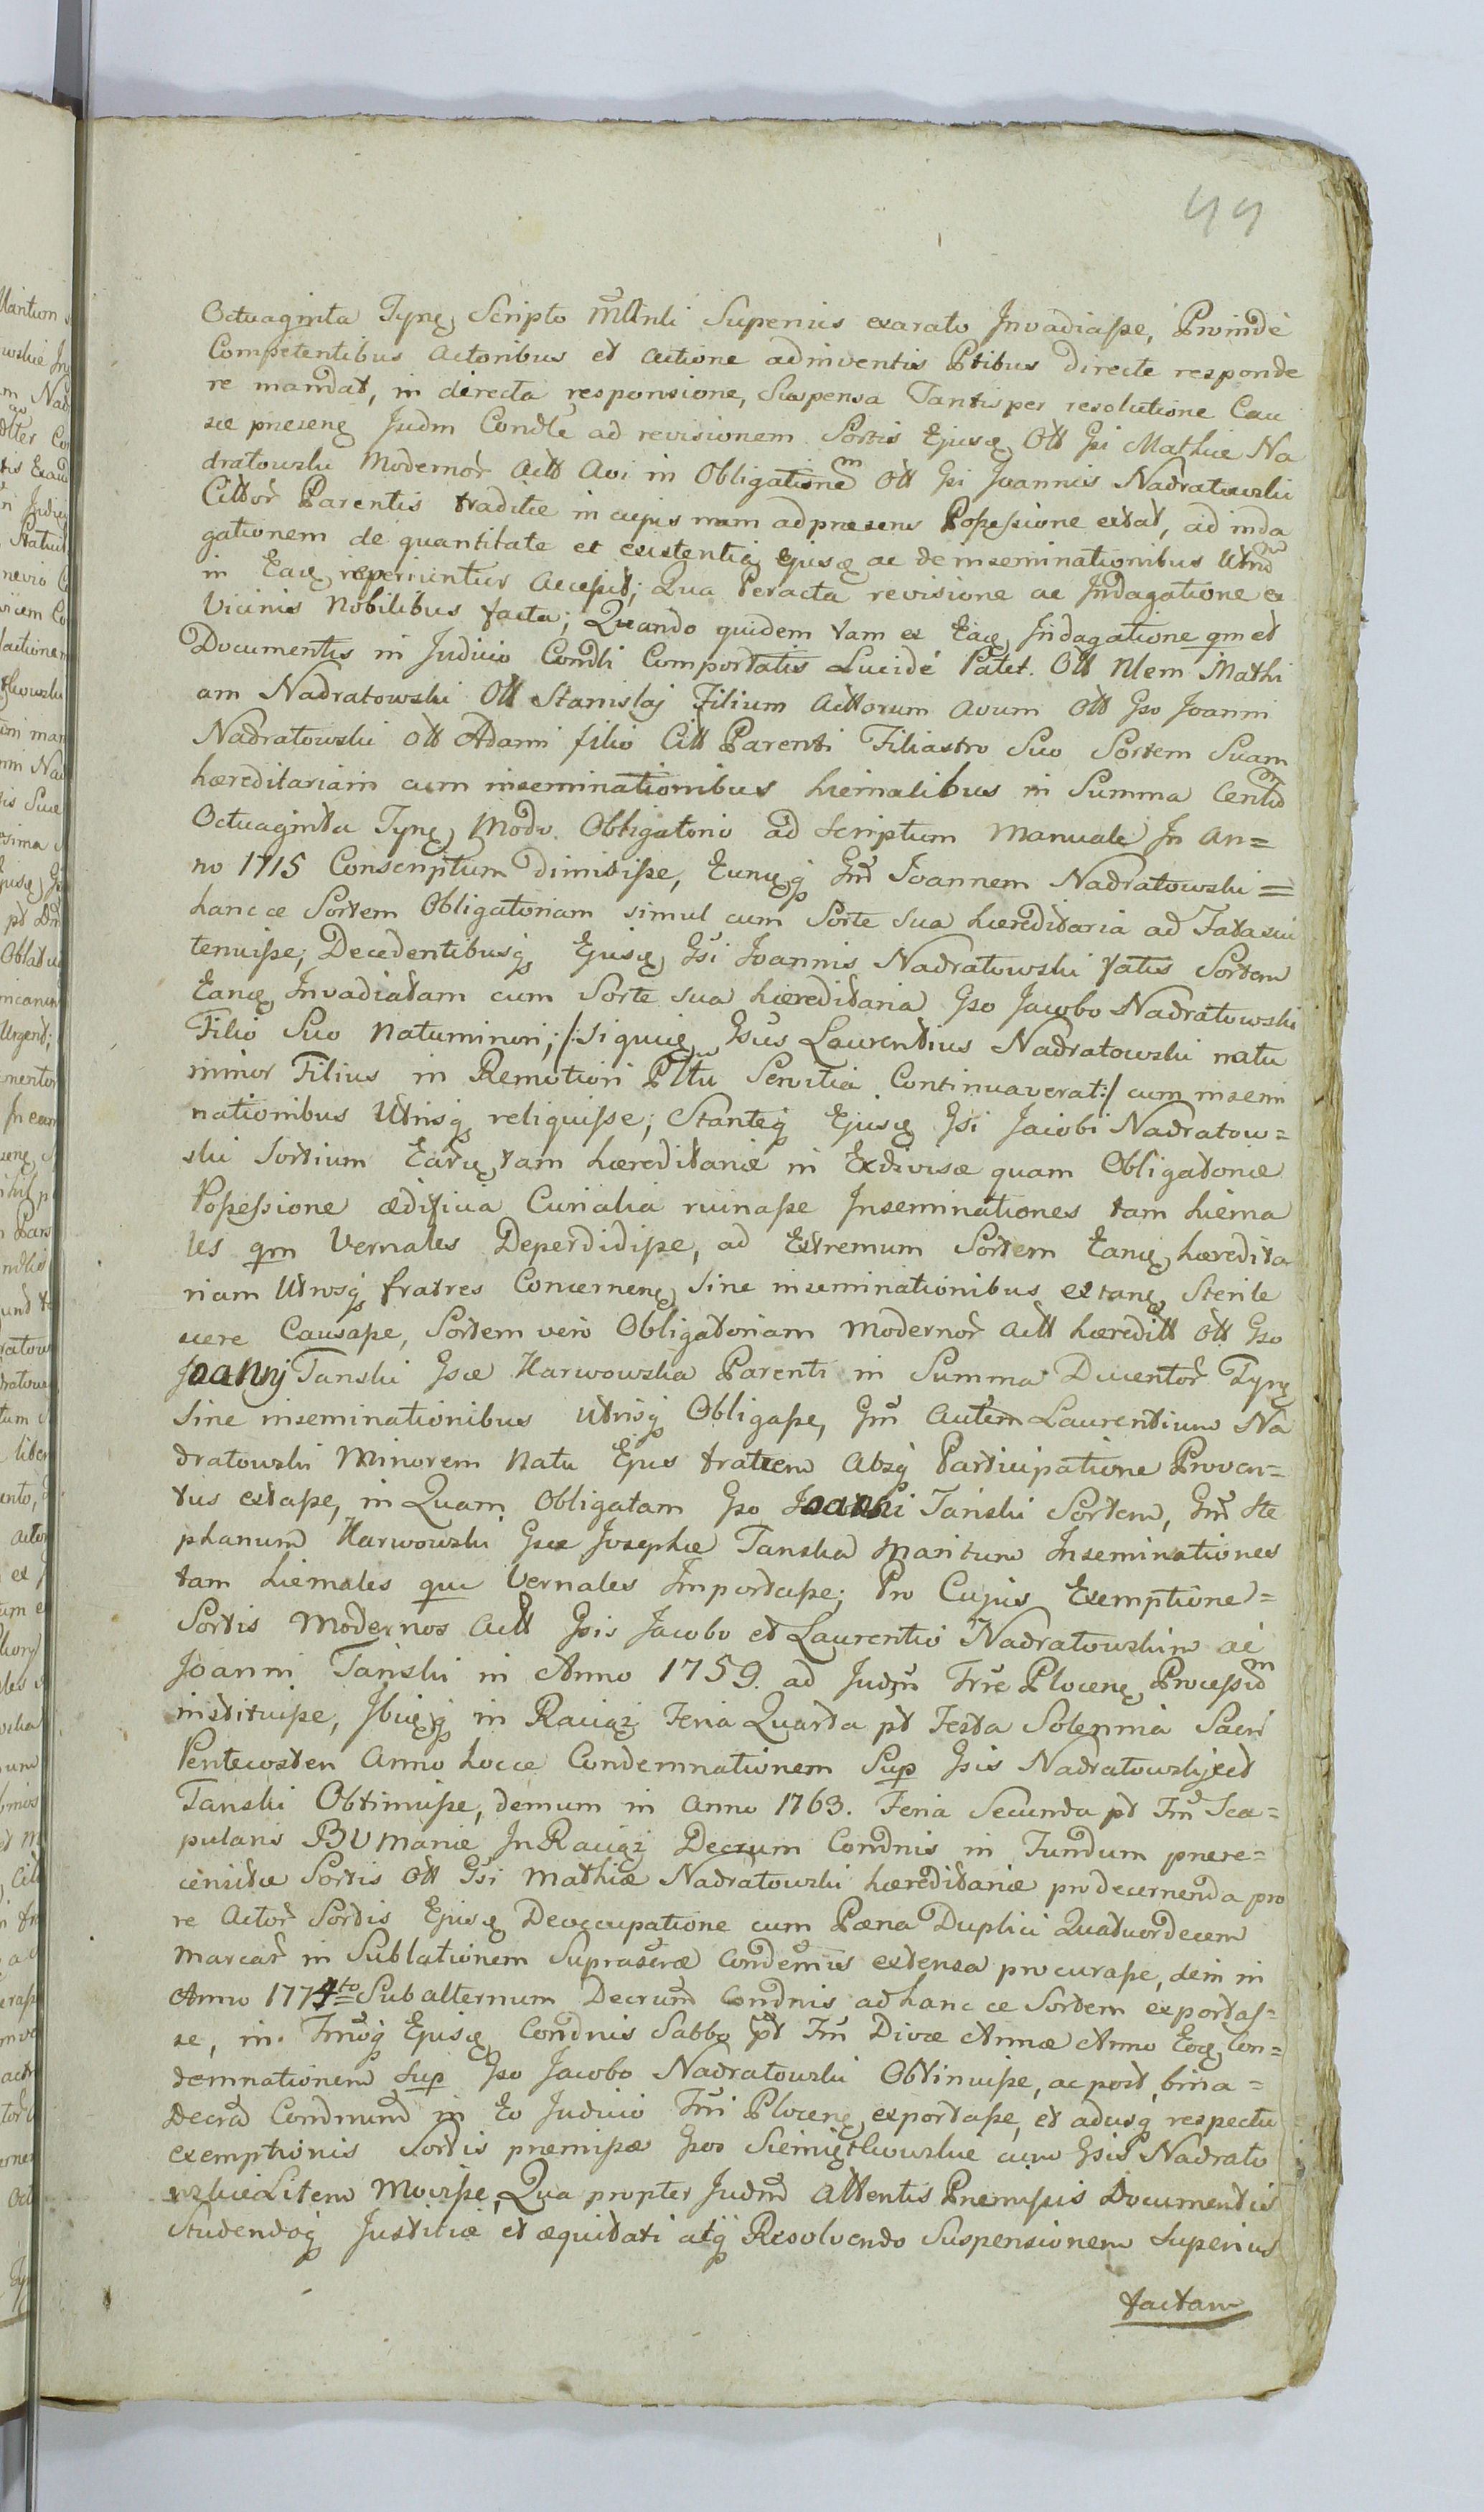 44
Octuaginta Tynę Scripto Mãnli Superius exarato Invadiasse, Proindé
Competentibus Actoribus et Actione adinventis Ptibus directe responde
re mandat, in directa responsione, Suspensa Tantisper resolutione Cau
sæ præsenę Judm Condle ad revisionem Sortis Ejusę Ott Gsi Mathiæ Na
dratowski Modernor̃ Actt Avi in Obligationem Ott Gsi Joannis Nadratowski
Cittor̃ Parentis traditæ in cujus nam adpræsens Possessione extat, ad inda
gationem de quantitate et existentia Ejusę ac de inseminationibus
in Eaę reperiuntur Accessit; Qua Peracta revisione ac Indagatione ex
Vicinis Nobilibus facta; Quando quidem tam ex Eaę Indagatione qm et
Documentis in Judicio Condli Comportatis Lucidé Patet. Ott Nlem Mathi
am Nadratowski Ott Stanislaj Filium Acttorum Avum Ott Gso Joanni
Nadratowski Ott Adami filio Citt Parenti Filiastro Suo Sortem Suam
hæreditariam cum inseminationibus hiemalibus in Summa Centum
Octuaginta Tynę Modo Obligatorio ad Scriptum Manuale In An=
no 1715 Conscriptum dimisisse, Eunęq Gm̃ Joannem Nadratowski =
hancce Sortem Obligatoriam simul cum Sorte sua hæreditaria ad Fata sui
tenuisse; Decedentibusq Ejusę Gsi Joannis Nadratowski fatis Sortem
Eanę Invadiatam cum Sorte sua hæreditaria Gso Jacobo Nadratowski
Filio Suo Natuminori; /:siquię Gsus Laurentius Nadratowski natu
minor Filius in Remotiori Servitia Continuaverat:/ cum insemi
nationibus Utrisq reliquisse; Stanteq Ejusę Gsi Jacobi Nadratow=
ski Sortium Earę tam hæreditariæ in Exdivisæ quam Obligatoriæ
Possessione ædificia Curialia ruinasse Inseminationes tam hiema
les qm Vernales Deperdidisse, ad Extremum Sortem Eanę hæredita
riam Utrosq fratres Concernenę sine inseminationibus extanę Sterile
scere Causasse, Sortem vero Obligatoriam Modernor̃ Actt hæreditt Ott Gso
Joannj Tanski Gsæ Karwowska Parenti in Summa Ducentor̃ Tynę
Sine inseminationibus utrisq Obligasse, Gm̃ Autem Laurentium Na
dratowski Minorem Natu Ejus fratrem Absq Participatione Proven=
tus extasse, in Quam Obligatam Gso Joanni Tański Sortem, Gm̃ Ste
phanum Karwowski Gsæ Josephæ Tanska Maritum Inseminationes
tam hiemales Vernales Importasse; Pro Cujus Exemptione =
Sortis Modernos Actt Gsis Jacobo et Laurentio Nadratowskim ac
Joanni Tański in Anno 1759. ad Judm̃ Trr̃e Plocenę Processum
instituisse, Ibięq in Raciąż Feria Quarta pt Festa Solennia Sacri
Pentecosten Anno hocce Condemnationem Sup Gsis Nadratowskj et
Tanski Obtinuisse, demum in Anno 1763. Feria Secunda pt Fm̃ Sca=
pularis BVMariæ In Raciąż Decrum Condnis in Fundum prære=
censitæ Sortis Ott Gsi Mathiæ Nadratowski hæreditariæ pro decernenda pro
re Actor̃ Sortis Ejusę Deoccupatione cum Pæna Duplici Quatuordecem
Marcar̃ in Sublationem extensa procurasse, dein in
Anno 1774to Subalternum Decrum Condnis ad hancce Sortem exportas=
se, in Ejusę Condnis Sabbo pt Fm̃ Divæ Annæ Anno Eoę Con=
demnationem Sup Gso Jacobo Nadratowski Obtinuisse, ac post bina =
Decra in Eo Judicio Trri Plocenę exportasse, et adusq respectu
exemptionis Sortis præmissæ Gsos Siemiątkowskie cum Gsis Nadrato
wskie Litem Movisse, Qua propter Judm Attentis Præmissis Documentis
Studendoq Justitiæ et æquitati atq Resolvendo Suspensionem Superius
factam